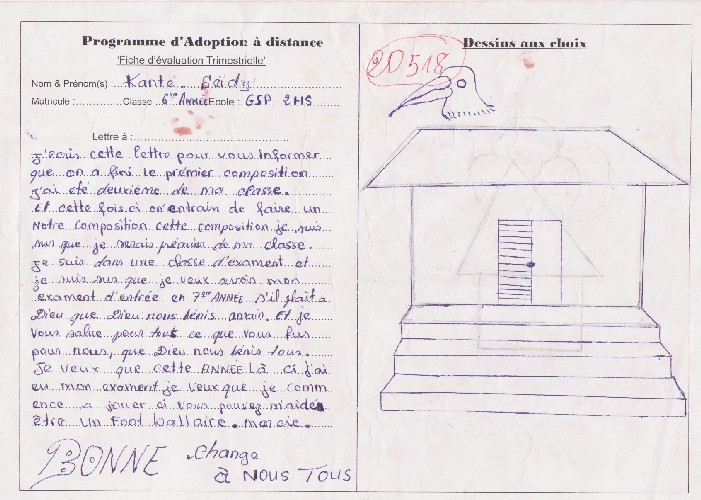 Programme d'Adoption à distance
'Fiche d'évaluation Trimestrielle'
Nom & Prénom(s) : Kanté Seidy
Matricule : Classe : 6ème Année Ecole : GSP 2HS
Lettre à :
J'ecris cette lettre pour vous informer
que on a fini le prémier composition
j'ai eté deuxième de ma classe.
Et cette fois ci on entrain de faire un
Notre composition cette composition je suis
sus que je serais prémier de ma classe.
Je suis dans une classe d'exament et
je suis sus que je veux avois mon
exament d'entrée en 7ème ANNEE s'il plait a
Dieu que Dieu nous bénis amain. Et je
vous salue pour tout ce que vous fus
pour nous, que Dieu nous bénis tous.
Je veux que cette ANNEE Là ci j'ai
eu mon exament je veux que je comm
ence a jouer ci vous pouvez m'aider
être un Foot ballaire. mercie.
BONNE change
à NOUS TOUS
Dessins aux choix
2D518